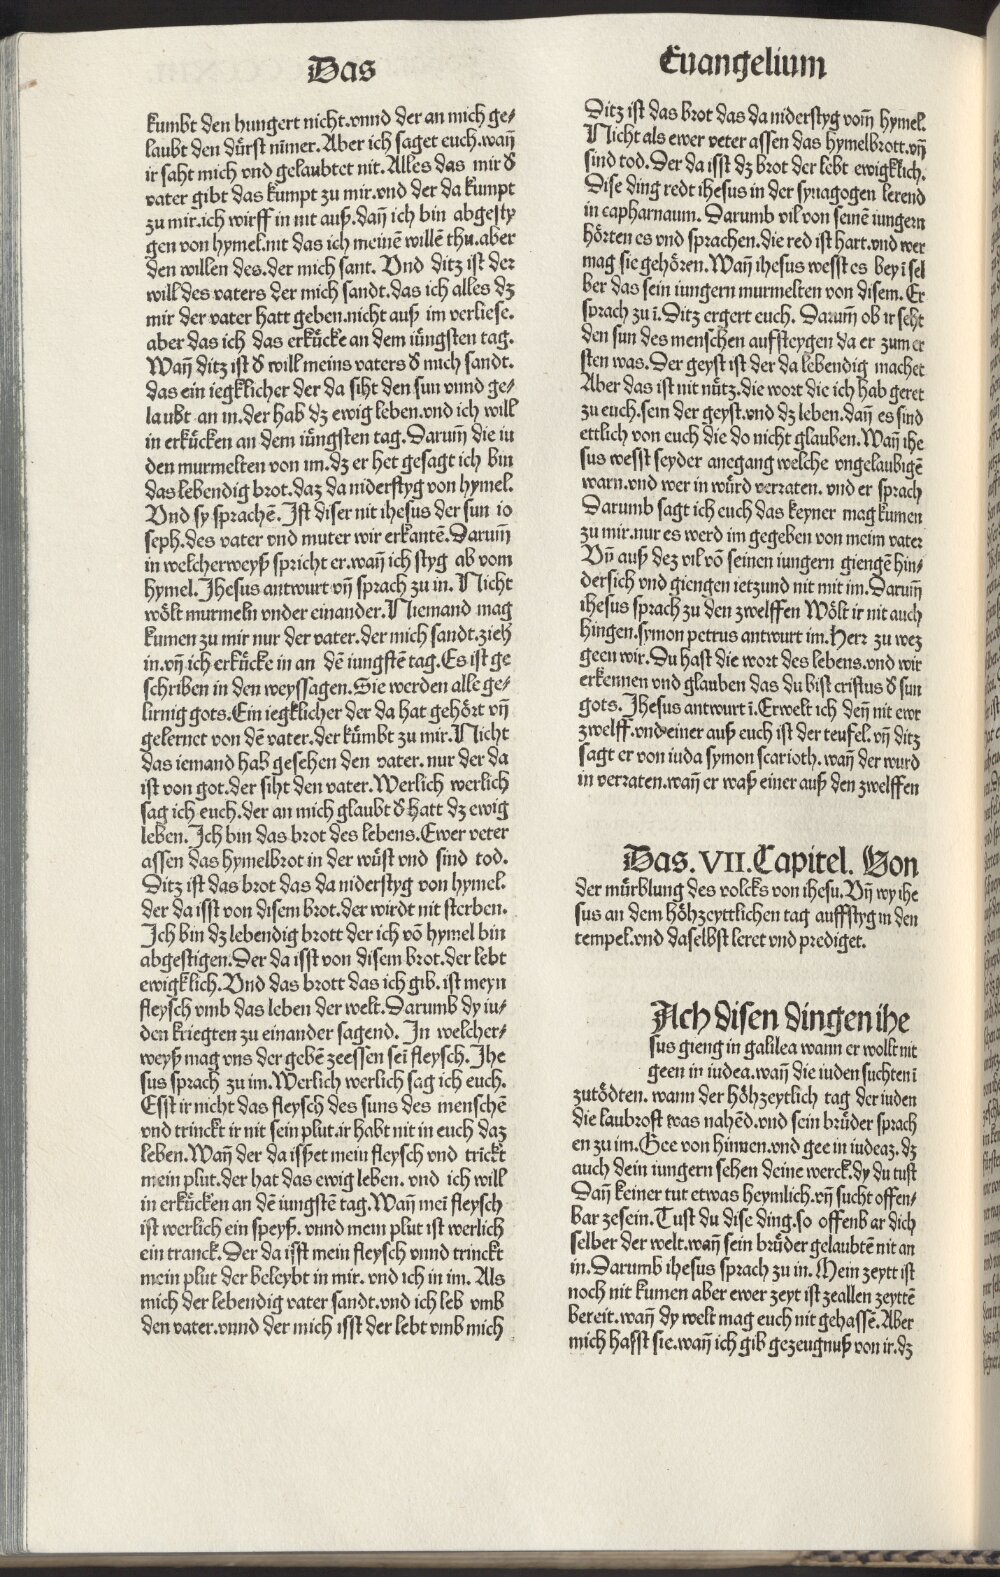 Das Euangelium
kumbt den hungert nicht.vnnd der an mich ge⸗
laubt den dürst nīmer. Aber ich saget euch.wañ
ir saht mich vnd gelaubtet nit. Alles das mir d̄
vater gibt das kumpt zu mir.vnd der da kumpt
zu mir.ich wirff in nit auß.dañ ich bin abgesty
gen von hymel.nit das ich meinē willē thu.aber
den willen des.der mich sant. Vnd ditz ist der
will des vaters der mich sandt.das ich alles dz
mir der vater hatt geben.nicht auß im verliese.
aber das ich das erkücke an dem iüngsten tag.
Wañ ditz ist d̄ will meins vaters d̄ mich sandt.
das ein iegklicher der da siht den sun vnnd ge⸗
laubt an in.der hab dz ewig leben.vnd ich will
in erkücken an dem iüngsten tag.Darum̄ die iu
den murmelten von im.dz er het gesagt ich bin
das lebendig brot.daz da niderstyg von hymel.
Vnd sy sprachē.Ist diser nit ihesus der sun io
seph.des vater vnd muter wir erkantē.Darum̄
in welcherweyß spricht er.wañ ich styg ab vom
hymel.Ihesus antwurt vñ sprach zu in. Nicht
wölt murmeln vnder einander.Niemand mag
kumen zu mir nur der vater.der mich sandt.zieh
in.vñ ich erkücke in an dē iungstē tag.Es ist ge
schriben in den weyssagen.Sie werden alle ge⸗
lirnig gots.Ein iegklicher der da hat gehört vñ
gelernet von dē vater.der kümbt zu mir.Nicht
das iemand hab gesehen den vater. nur der da
ist von got.der siht den vater.Werlich werlich
sag ich euch.der an mich glaubt d̄ hatt dz ewig
leben.Ich bin das brot des lebens.Ewer veter
assen das hymelbrot in der wüst vnd sind tod.
Ditz ist das brot das da niderstyg von hymel.
der da isst von disem brot.der wirdt nit sterben.
Ich bin dz lebendig brott der ich vō hymel bin
abgestigen.Der da isst von disem brot.der lebt
ewigklich.Vnd das brott das ich gib. ist meyn
fleysch vmb das leben der welt.Darumb dy iu⸗
den kriegten zu einander sagend. In welcher⸗
weyß mag vns der gebē zeessen sei fleysch.Ihe
sus sprach zu im.Werlich werlich sag ich euch.
Esst ir nicht das fleysch des suns des menschē
vnd trinckt ir nit sein plut.ir habt nit in euch daz
leben.Wañ der da isset mein fleysch vnd trīckt
mein plut.der hat das ewig leben. vnd ich will
in erkücken an dē iungstē tag.Wañ mei fleysch
ist werlich ein speyß. vnnd mein plut ist werlich
ein tranck.Der da isst mein fleysch vnnd trinckt
mein plut der beleybt in mir. vnd ich in im. Als
mich der lebendig vater sandt.vnd ich leb vmb
den vater.vnnd der mich isst der lebt vmb mich
Ditz ist das brot das da niderstyg vom̄ hymel.
Nicht als ewer veter assen das hymelbrott.vñ
sind tod.Der da isst dz brot der lebt ewigklich.
Dise ding redt ihesus in der synagogen lerend
in capharnaum. Darumb vil von seinē iungern
hörten es vnd sprachen.die red ist hart.vnd wer
mag sie gehören.Wañ ihesus wesst es bey ī sel
ber das sein iungern murmelten von disem.Er
sprach zu ī.Ditz ergert euch. Darum̄ ob ir seht
den sun des menschen aufsteygen da er zum er
sten was.Der geyst ist der da lebendig machet
Aber das ist nit nütz.die wort die ich hab geret
zu euch.sein der geyst.vnd dz leben.dañ es sind
ettlich von euch die do nicht glauben.Wañ ihe
sus wesst seyder anegang welche vngelaubigē
warn.vnd wer in würd verraten. vnd er sprach
Darumb sagt ich euch das keyner mag kumen
zu mir.nur es werd im gegeben von meim vater
Vñ auß dez vil vō seinen iungern giengē hin⸗
dersich vnd giengen ietzund nit mit im.Darum̄
ihesus sprach zu den zwelffen Wölt ir nit auch
hingen.symon petrus antwurt im.Herr zu wez
geen wir.Du hast die wort des lebens.vnd wir
erkennen vnd glauben das du bist cristus d̄ sun
gots. Ihesus antwurt ī.Erwelt ich deñ nit ewr
zwelff.vnd einer auß euch ist der teufel. vñ ditz
sagt er von iuda symon scarioth. wañ der wurd
in verraten.wañ er waß einer auß den zwelffen
Das. VII. Capitel. Von
der mürblung des volcks von ihesu.Vñ wy ihe
sus an dem höhzeyttlichen tag auffstyg in den
tempel.vnd daselbst leret vnd prediget.
Ach disen dingen ihe
sus gieng in galilea wann er wollt nit
geen in iudea.wañ die iuden suchten ī
zutödten. wann der höhzeytlich tag der iuden
die laubrost was nahēd.vnd sein brüder sprach
en zu im.Gee von hinnen.vnd gee in iudeaz.dz
auch dein iungern sehen deine werck.dy du tust
Dañ keiner tut etwas heymlich.vñ sucht offen⸗
bar zesein.Tust du dise ding.so offenbar dich
selber der welt.wañ sein brüder gelaubtē nit an
in.Darumb ihesus sprach zu in.Mein zeytt ist
noch nit kumen aber ewer zeyt ist zeallen zeyttē
bereit.wañ dy welt mag euch nit gehassē.Aber
mich hasst sie.wañ ich gib gezeugnuß von ir.dz